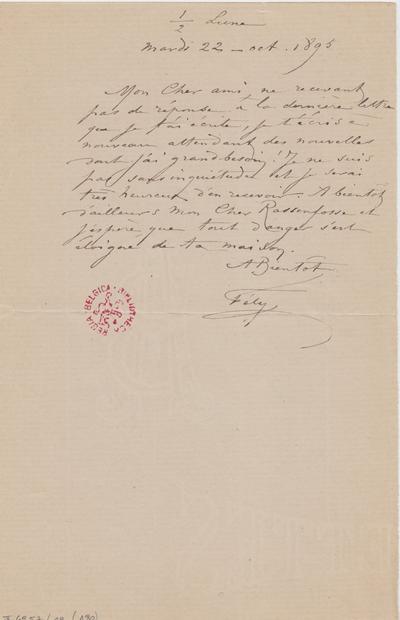 1/2 Lune
Mardi 22 - oct. 1895
Mon Cher ami, ne recevant
pas de réponse à la dernière lettre
que je t'ai écrite, je t'écris a
nouveau attendant des nouvelles
dont j'ai grand besoin! Je ne suis
pas sans inquiétudes et je serai
très heureux d'en recevoir. A bientôt
d'ailleurs Mon Cher Rassenfosse et
j'espère que tout danger s'est
éloigné de ta maison.
A Bientôt
Fély
BIBLIOTHECA REGIA BELGICA